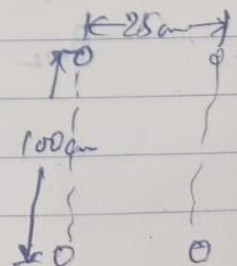 25cm
100cm